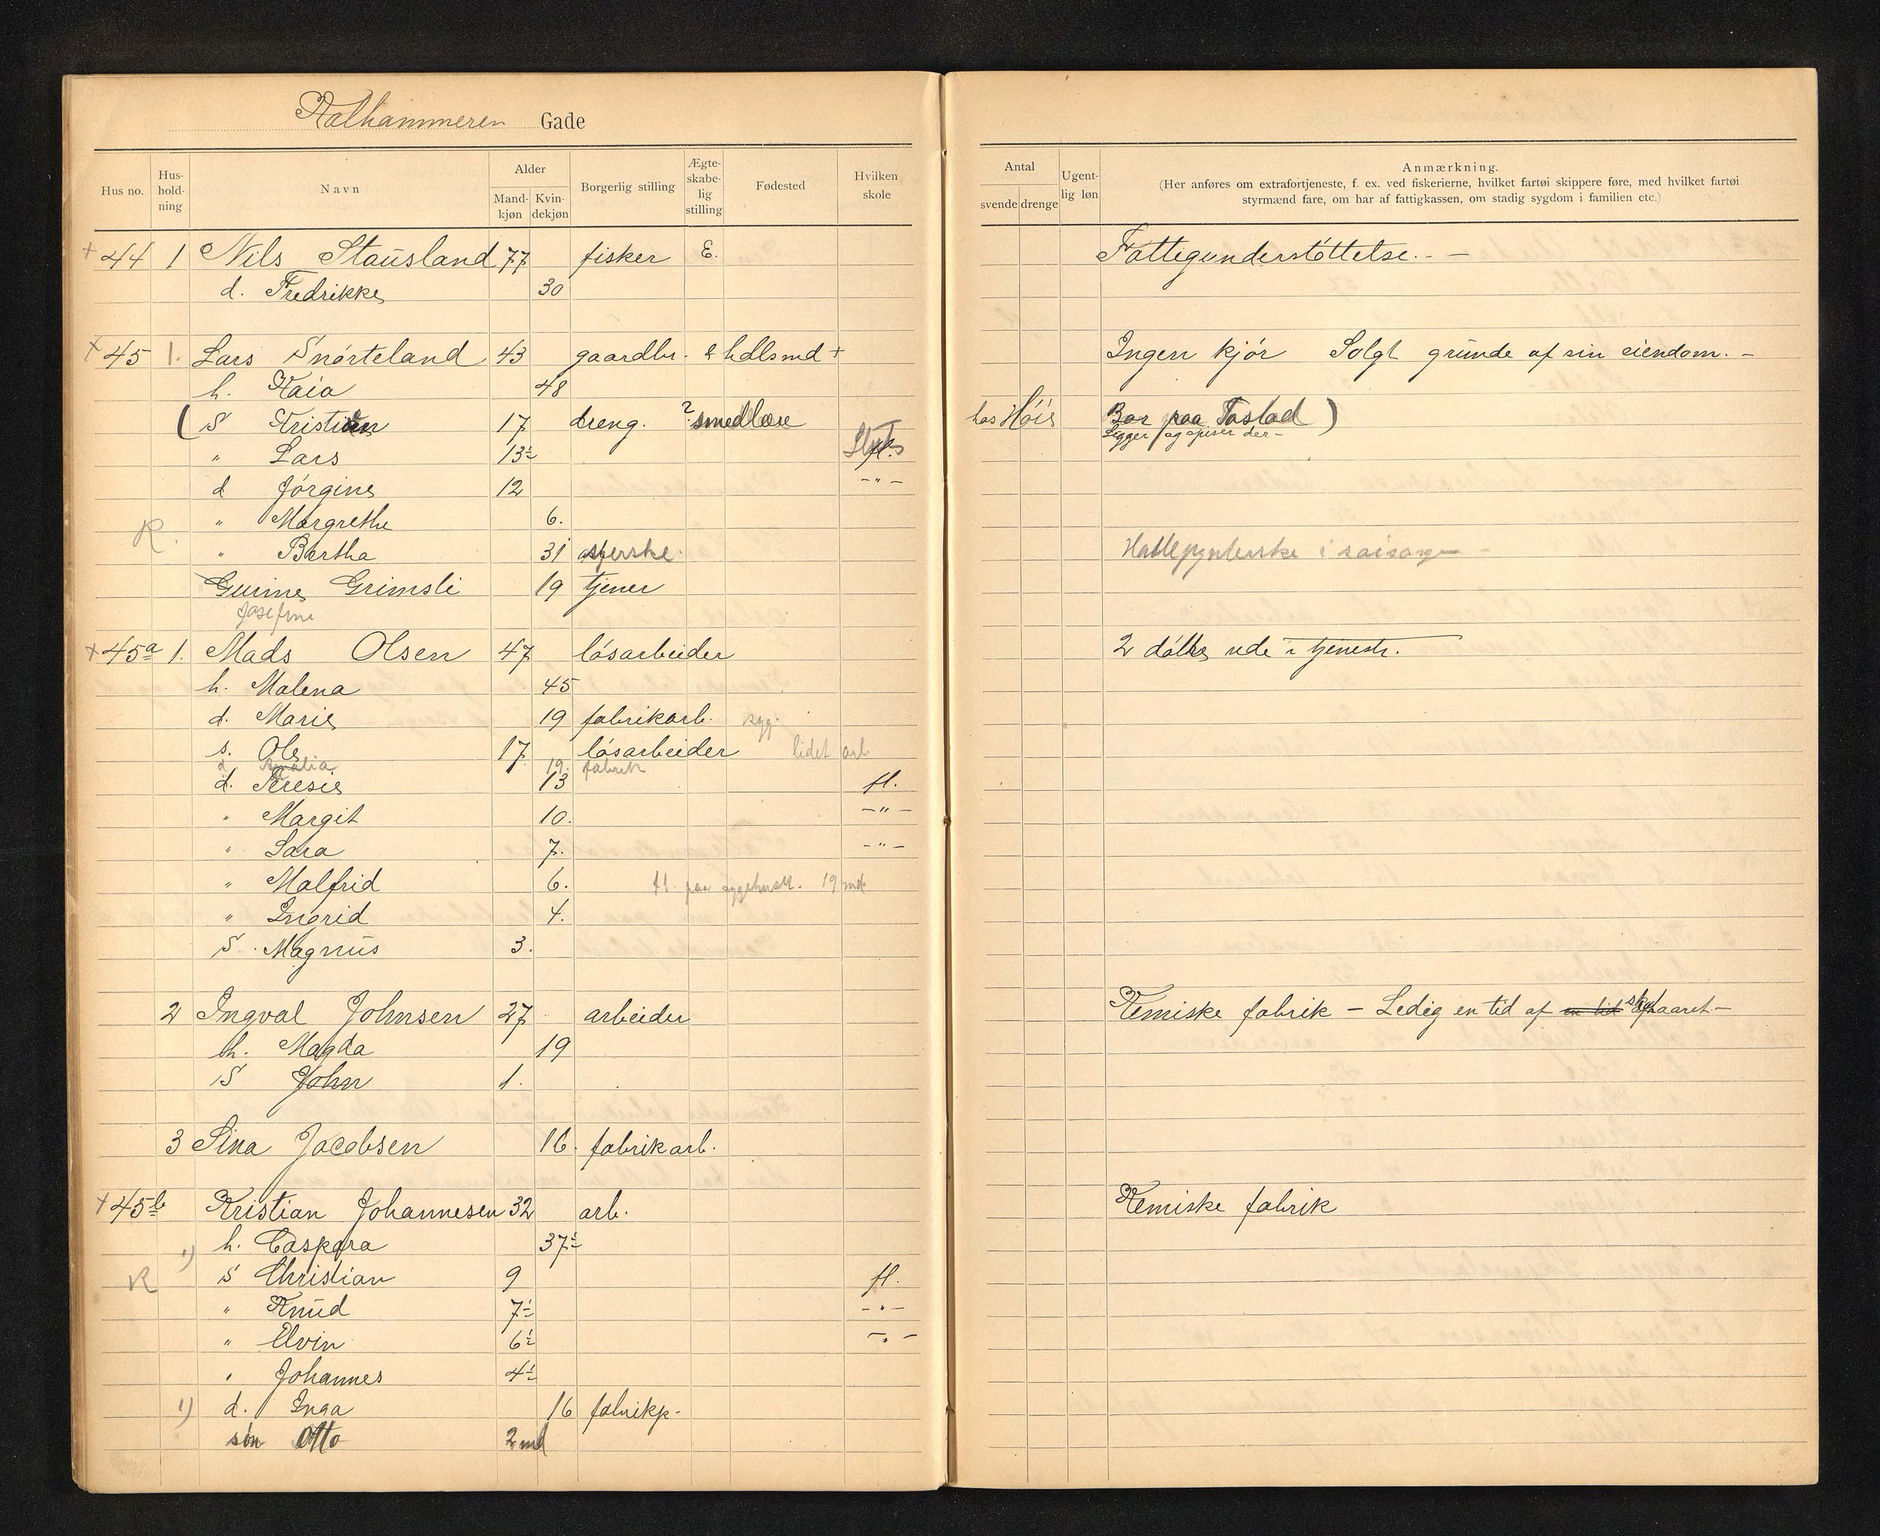 Kalhammeren Gade
Hus no. Hus-hold-ning Navn Alder Mand-kjøn Kvin-dekjøn Borgerlig stilling Ægte-skabe-lig stilling Fødested Hvilken skole
Antal svende drenge Ugent-lig løn Anmærkning.
(Her anføres om extrafortjeneste, f. ex. ved fiskerierne, hvilket fartøi skippere føre, med hvilket fartøi
styrmænd fare, om har af fattigkassen, om stadig sygdom i familien etc.)
+ 44 1 Nils Stausland 77 fisker E. Fattigunderstøttelse. -
d. Fredrikke 30
+ 45 1. Lars Snørteland 43 gaardbr. & hdlsmd + Ingen kjør Solgt grunde af sin eiendom. -
h. Kaia 48
( S Kristian 17 dreng. ? smedlære hos Høie Bor paa Tastad )
Ligger og spiser der -
" Lars 13½ fl.
d Jørgine 12 -"-
" Margrethe 6.
R. " Bertha 31 Hattepynterske i saison -
Gurine Grimsli 19 tjener
Josefine
+ 45a 1. Mads Olsen 47 løsarbeider 2 døttre ude i tjeneste.
h. Malena 45
d. Marie 19 fabrikarb. syg.
s. Ole 17 løsarbeider lidet arb.
d Amalia 19. fabrik
d. Teresie 13 fl.
" Margit 10. -"-
" Sara 7. -"-
" Malfrid 6. paa sygehuset. 19 md.
" Ingrid 4.
S. Magnus 3.
2 Ingval Johnsen 27 arbeider Kemiske fabrik - Ledig en tid af en tid af aaret -
h. Magda 19
S John 1.
3 Sina Jacobsen 16. fabrikarb.
+ 45b Kristian Johannesen 32 arb. Kemiske fabrik
1) h. Caspara 37½
R S Christian 9 fl.
" Knud 7½ -"-
" Elvin 6½ -"-
" Johannes 4½
1) d. Inga 16 fabrikp.
søn Otto 2 md